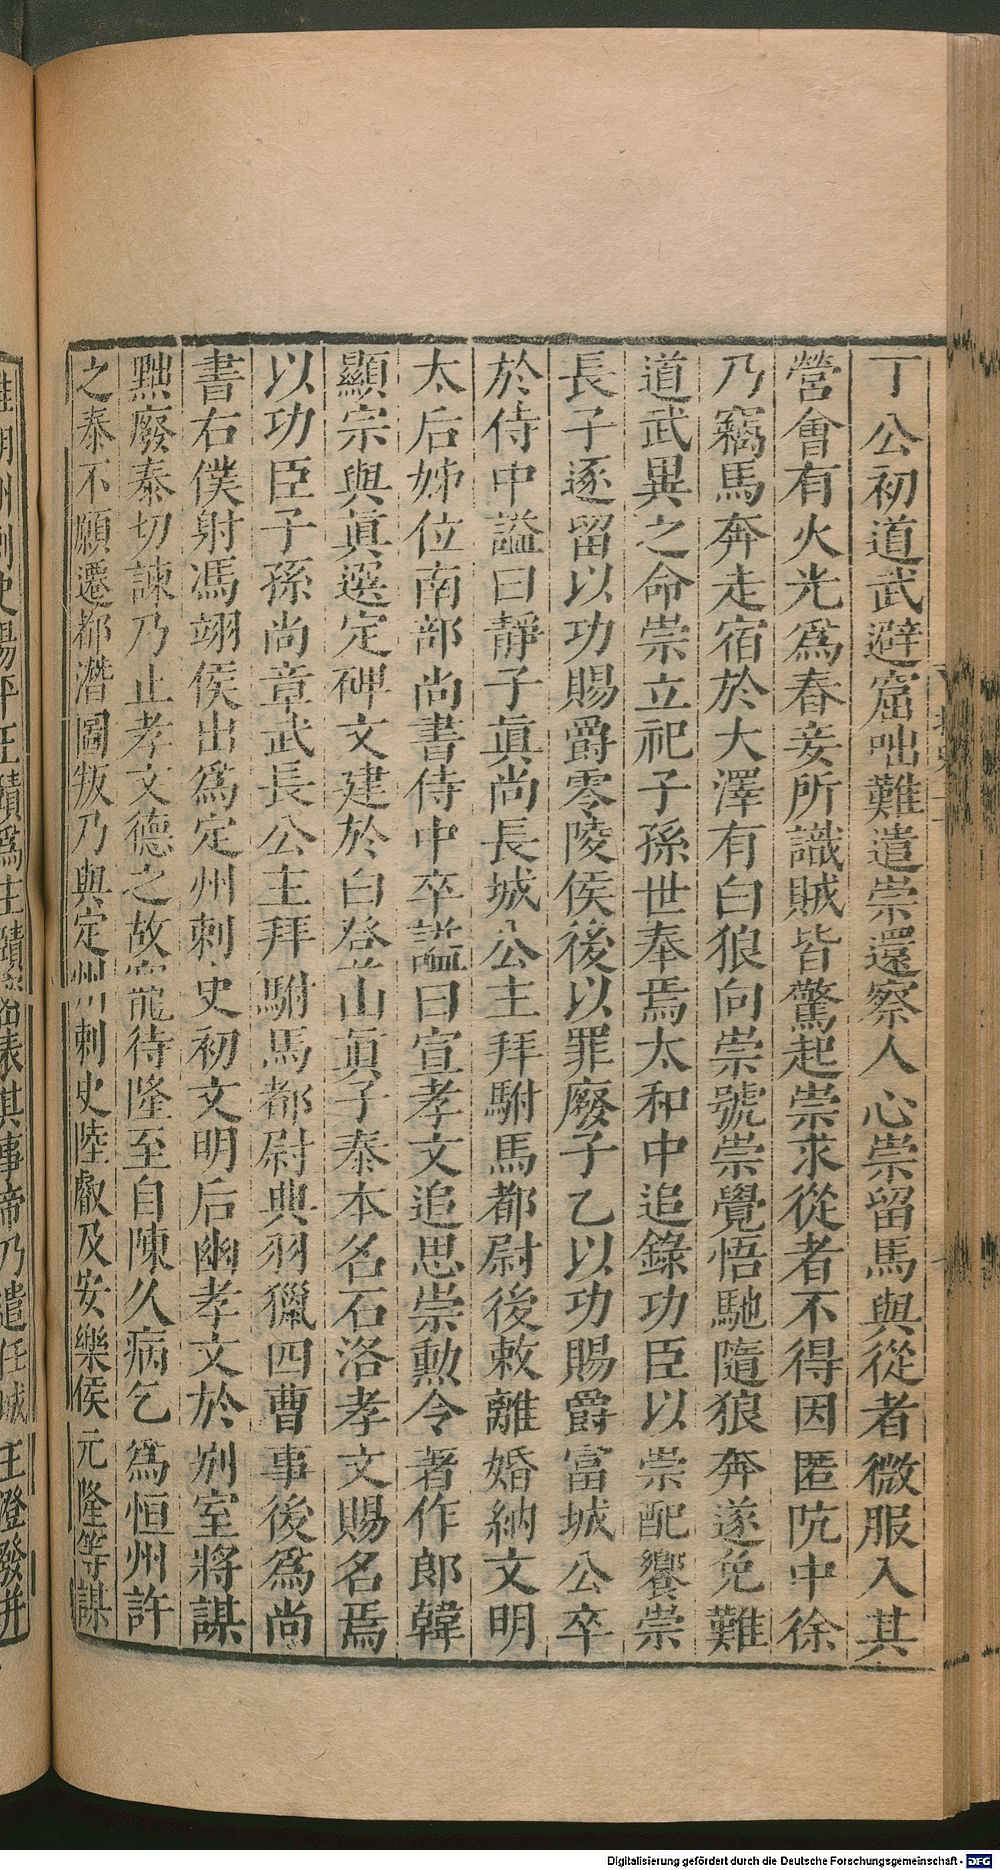 丁公初道武避窟咄難遣崇還察人心崇留馬與從者微服入其
營會有火光爲舂妾所識賊皆驚起崇求從者不得因匿阬中徐
乃竊馬奔走宿於大澤有白狼向崇號崇覺悟馳隨狼奔遂免難
道武異之命崇立祀子孫世奉焉太和中追錄功臣以崇配饗崇
長子逐留以功賜爵零陵侯後以罪廢子乙以功賜爵富城公卒
於侍中謚曰靜子眞尚長城公主拜駙馬都尉後敕離婚納文明
太后姊位南部尚書侍中卒謚曰宣孝文追思崇勲令著作郎韓
顯宗與眞選定碑文建於白登山眞子泰本名石洛孝文賜名焉
以功臣子孫尚章武長公主拜駙馬都尉典羽獵四曹事後爲尚
書右僕射馮翊侯出爲定州刺史初文明后幽孝文於別室將謀
黜廢泰切諫乃止孝文德之故寵待隆至自陳久病乞爲恒州許
之泰不願遷都潛圖叛乃與定州刺史陸叡及安樂侯元隆等謀
推朔州刺史陽平王頤爲主頤密表其事帝乃遣任城王澄發并
Digitalisierung gefördert durch die Deutsche Forschungsgemeinschaft - DFG